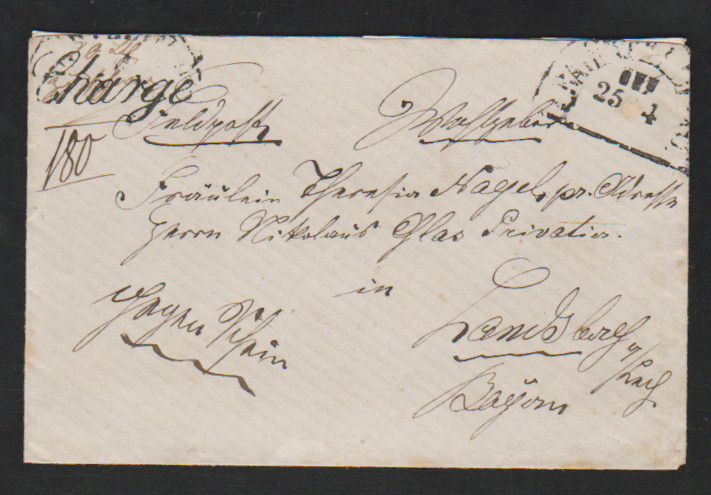 Chargé
25 4
180
Feldpost
Fräulein Theresia Nagel, pr. Adresse
Herrn Nikolaus Glas Privatier.
in
Gegen Schein
Landsberg
a/Lech
Bayern